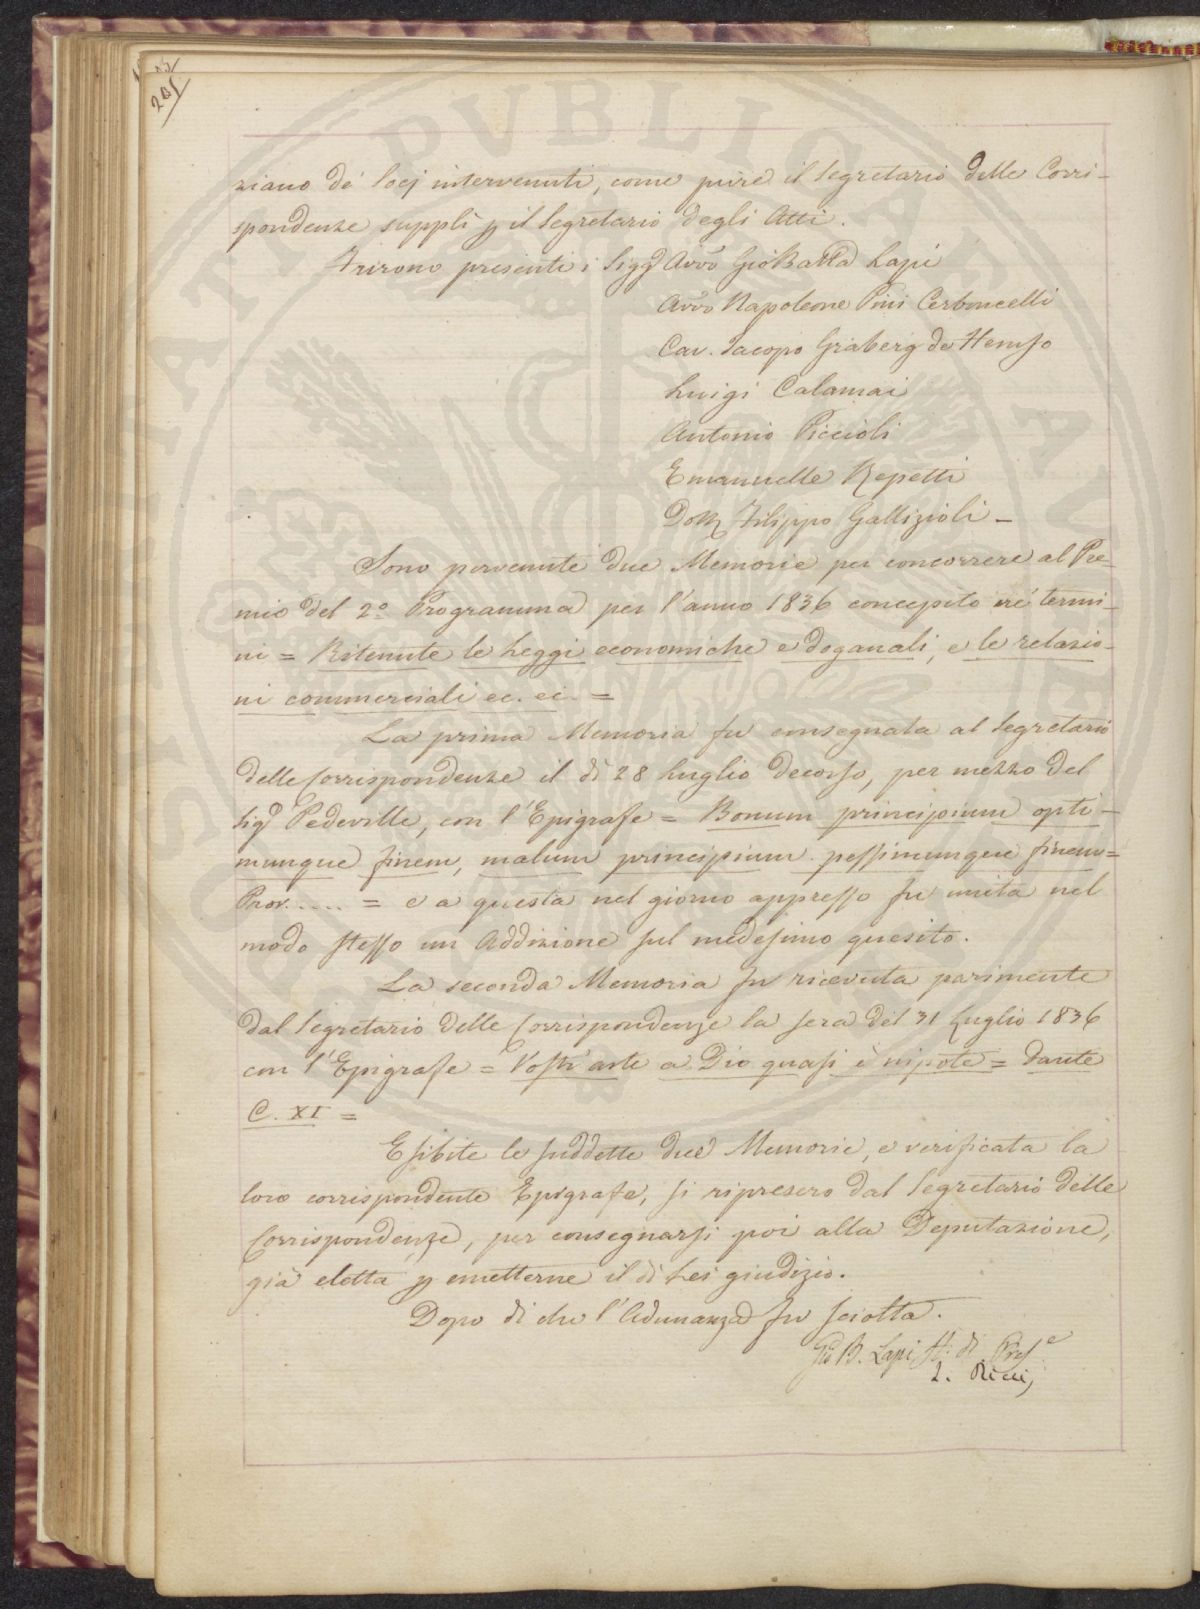 201
ziano de' Socj intervenuti, come pure il Segretario delle Corri-
spondenze supplì p il Segretario degli Atti.
Furono presenti i Sigg.ri Avv.o Gio Batta Lapi
Avv.o Napoleone Pini Cerboncelli
Cav. Jacopo Graberg de Hemso
Luigi Calamai
Antonio Piccioli
Emanuelle Repetti
Dott. Filippo Gallizioli -
Sono pervenute due Memorie per concorrere al Pre-
mio del 2.o Programma per l'anno 1836 concepito ne' termi-
ni = Ritenute le Leggi economiche e doganali, e le relazio-
ni commerciali ec. ec. =
La prima Memoria fu consegnata al Segretario
delle Corrispondenze il dì 28 Luglio decorso, per mezzo del
Sig.r Pedeville, con l'Epigrafe = Bonum principium opti-
mumque finem, malum principium pessimumque finem =
Prov..... = e a questa nel giorno appresso fu unita nel
modo stesso un Addizione sul medesimo quesito.
La seconda Memoria fu ricevuta parimente
dal Segretario delle Corrispondenze la sera del 31 Luglio 1836
con l'Epigrafe = Vostr'arte a Dio quasi è nipote = Dante
C. XI =
Esibite le suddette due Memorie, e verificata la
loro corrispondente Epigrafe, si ripresero dal Segretario delle
Corrispondenze, per consegnarsi poi alla Deputazione,
già eletta p emetterne il dì Lei giudizio.
Dopo di che l'Adunanza fu sciolta.
Gio B. Lapi ff. di Pres.e
I. Ricci,
PVBLICA